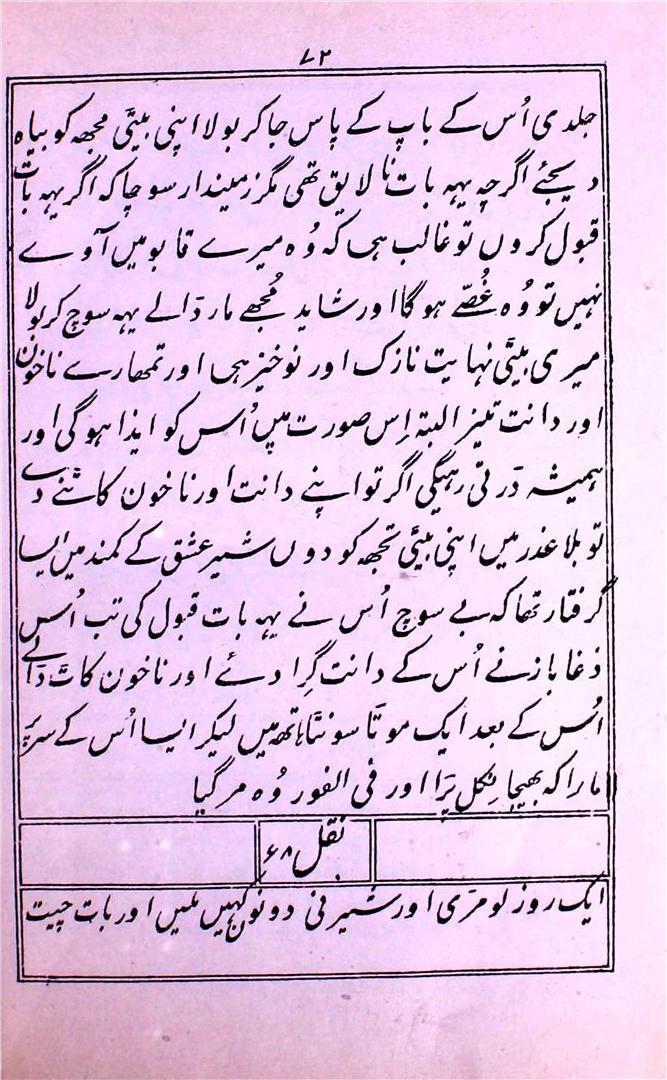 ۷۲
جلدی اُس کے باپ کے پاس جا کر بولا اپنی بیٹی مجھ کو بیاہ
دیجئے اگرچہ یہہ بات نالایق تھی مگر زمیندار سوچا کہ اگر یہہ بات
قبول کروں تو غالب ہی کہ وُہ میرے قابو میں آوے
نہیں تو وُہ غُصّے ہوگا اور شاید مُجھے مار ڈالے یہہ سوچ کر بولا
میری بیٹی نہایت نازک اور نوخیز ہی اور تمھارے ناخون
اور دانت تیز البتہ اِس صورت میں اُس کو ایذا ہوگی اور
ہمیشہ ڈرتی رہیگی اگر تو اپنے دانت اور ناخون کاٹنے دے
تو بلا عذر میں اپنی بیٹی تجھ کو دوں شیر عشق کے کمند میں ایسا
گرفتار تھا کہ بے سوچ اُس نے یہہ بات قبول کی تب اُس
دغاباز نے اُس کے دانت گِرا دئے اور ناخون کاٹ ڈالے
اُس کے بعد ایک موٹا سونٹا ہاتھ میں لیکر ایسا اُس کے سر پر
مارا کہ بھیجا نِکل پڑا اور فی الفور وُہ مر گیا
نقل ۶۸
ایک روز لومڑی اور شیرنی دونوں کہیں ملیں اور بات چیت